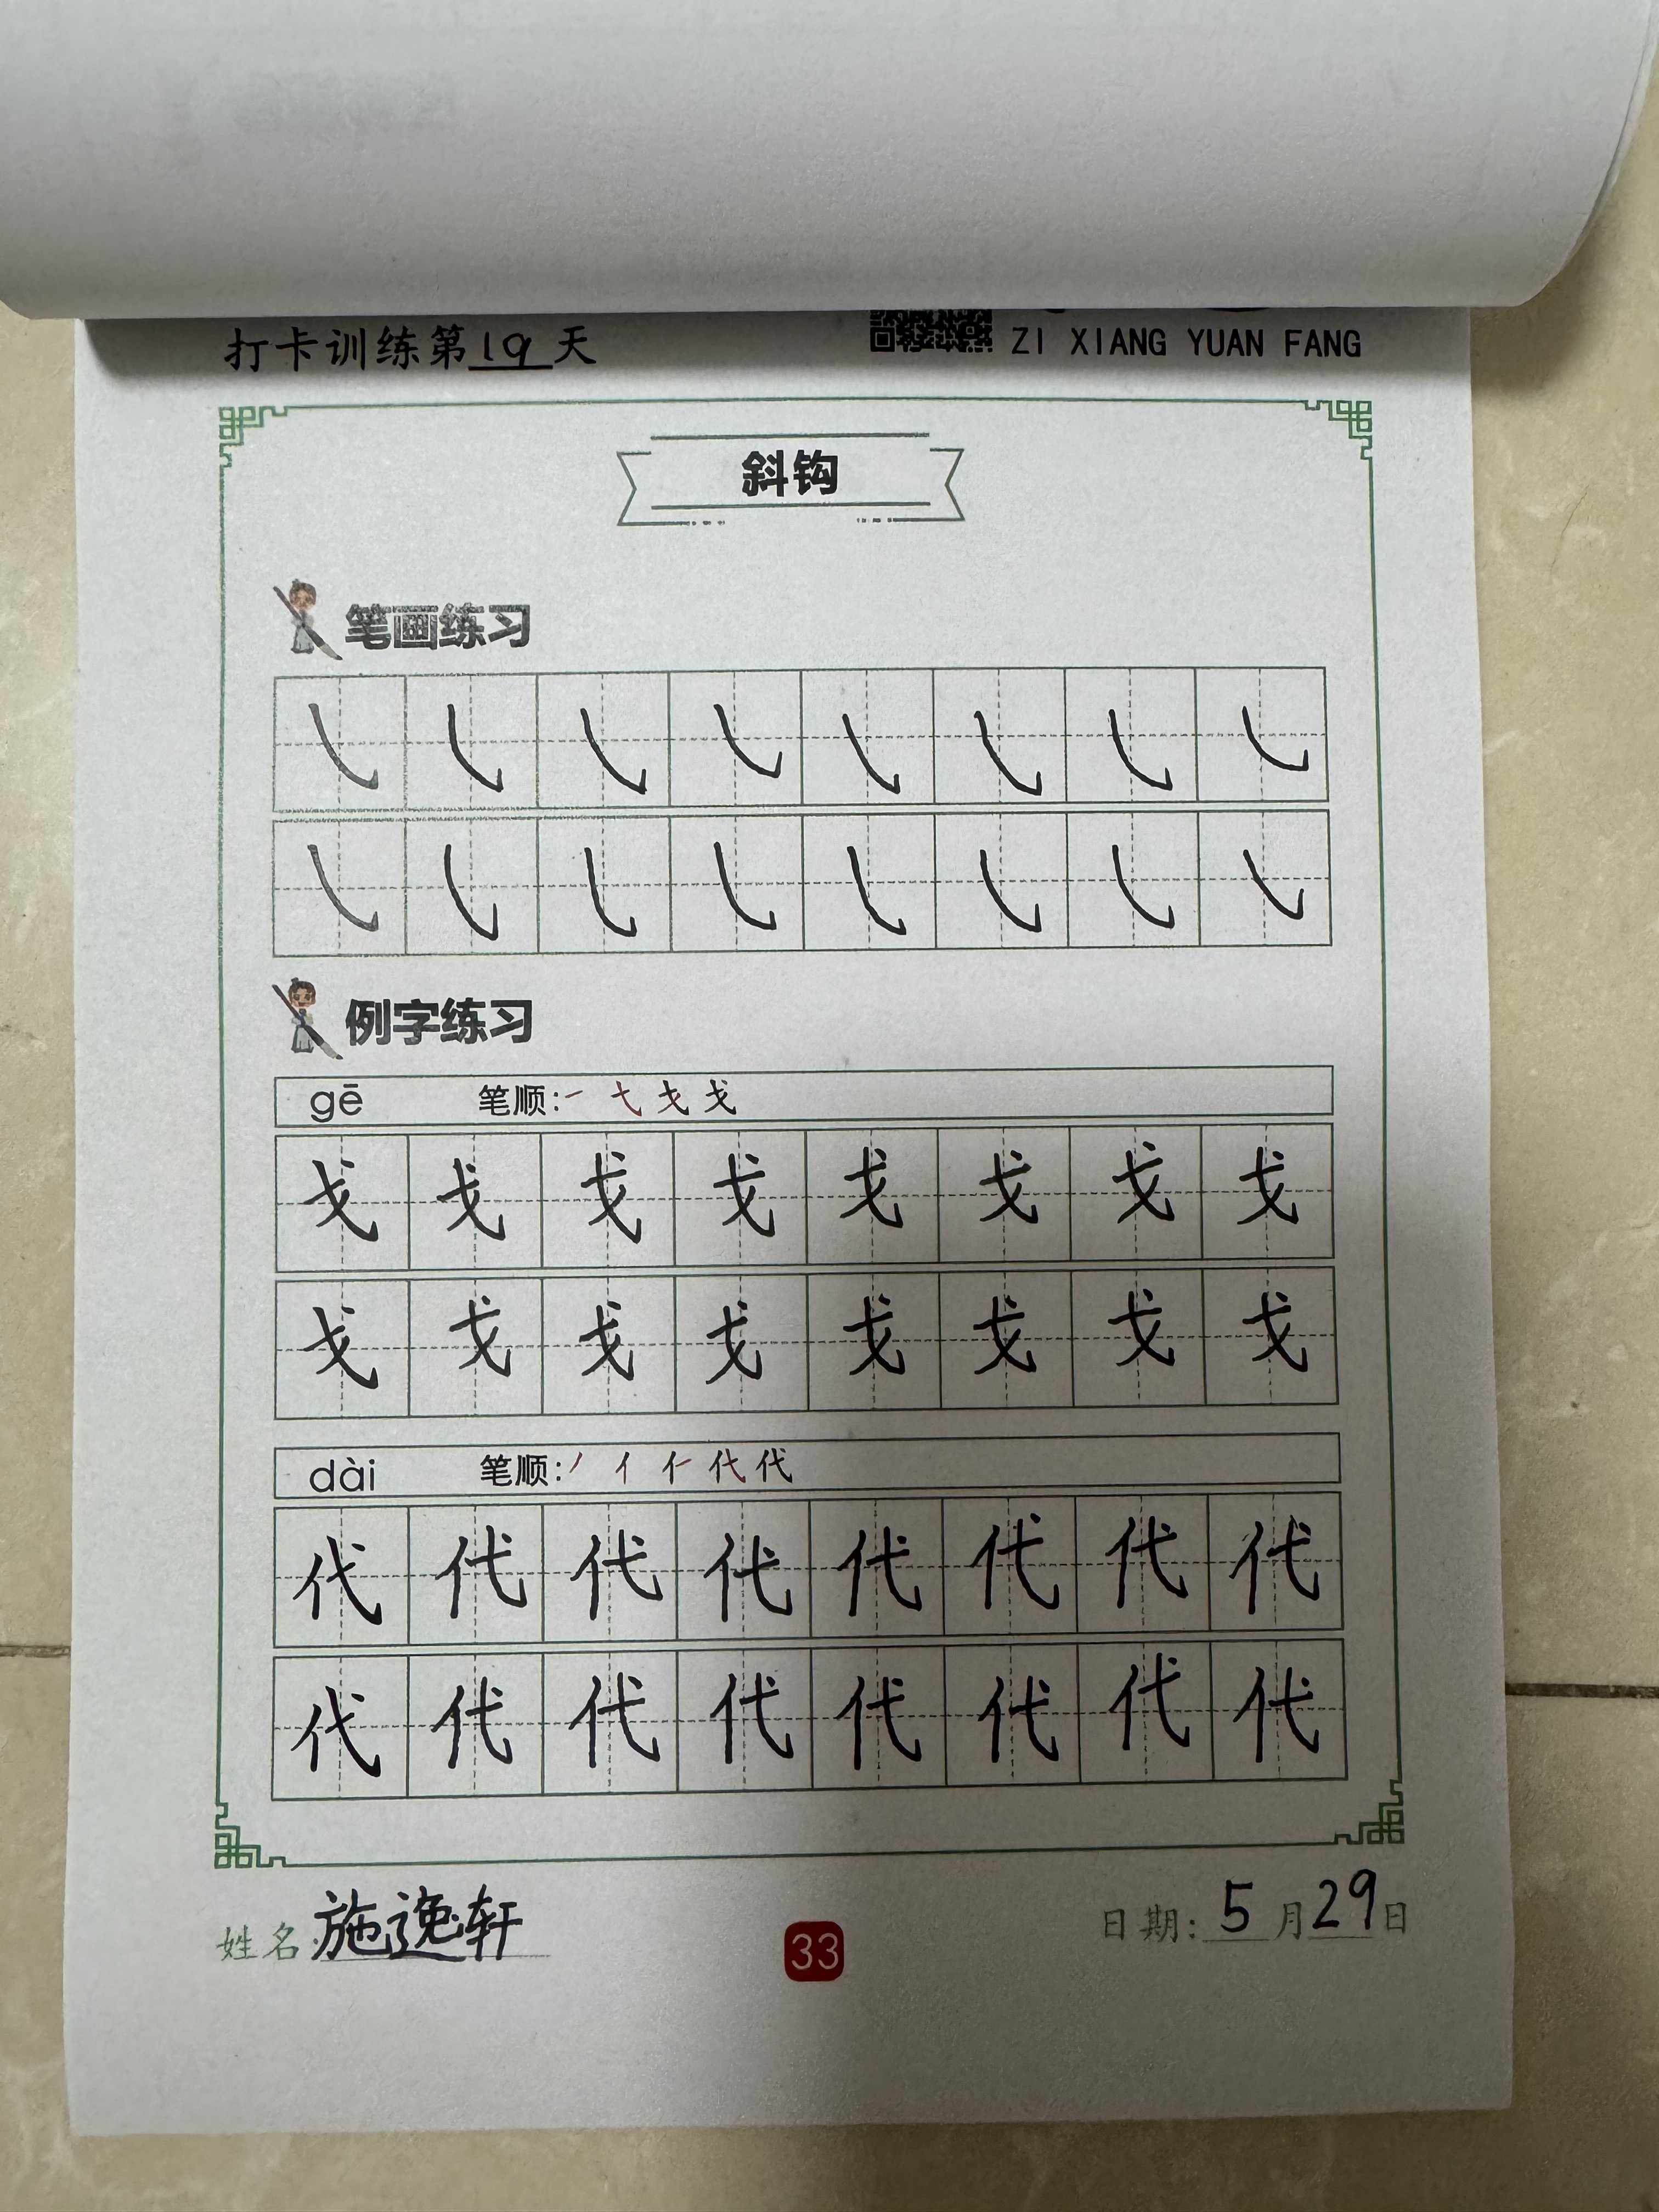 打卡训练第19天
ZI XIANG YUAN FANG
斜钩
笔画练习
㇂ ㇂ ㇂ ㇂ ㇂ ㇂ ㇂ ㇂
㇂ ㇂ ㇂ ㇂ ㇂ ㇂ ㇂ ㇂
例字练习
gē 笔顺:一 弋 戈 戈
戈 戈 戈 戈 戈 戈 戈 戈
戈 戈 戈 戈 戈 戈 戈 戈
dài 笔顺:丿 亻 仁 代 代
代 代 代 代 代 代 代 代
代 代 代 代 代 代 代 代
姓名:施逸轩
33
日期:5月29日